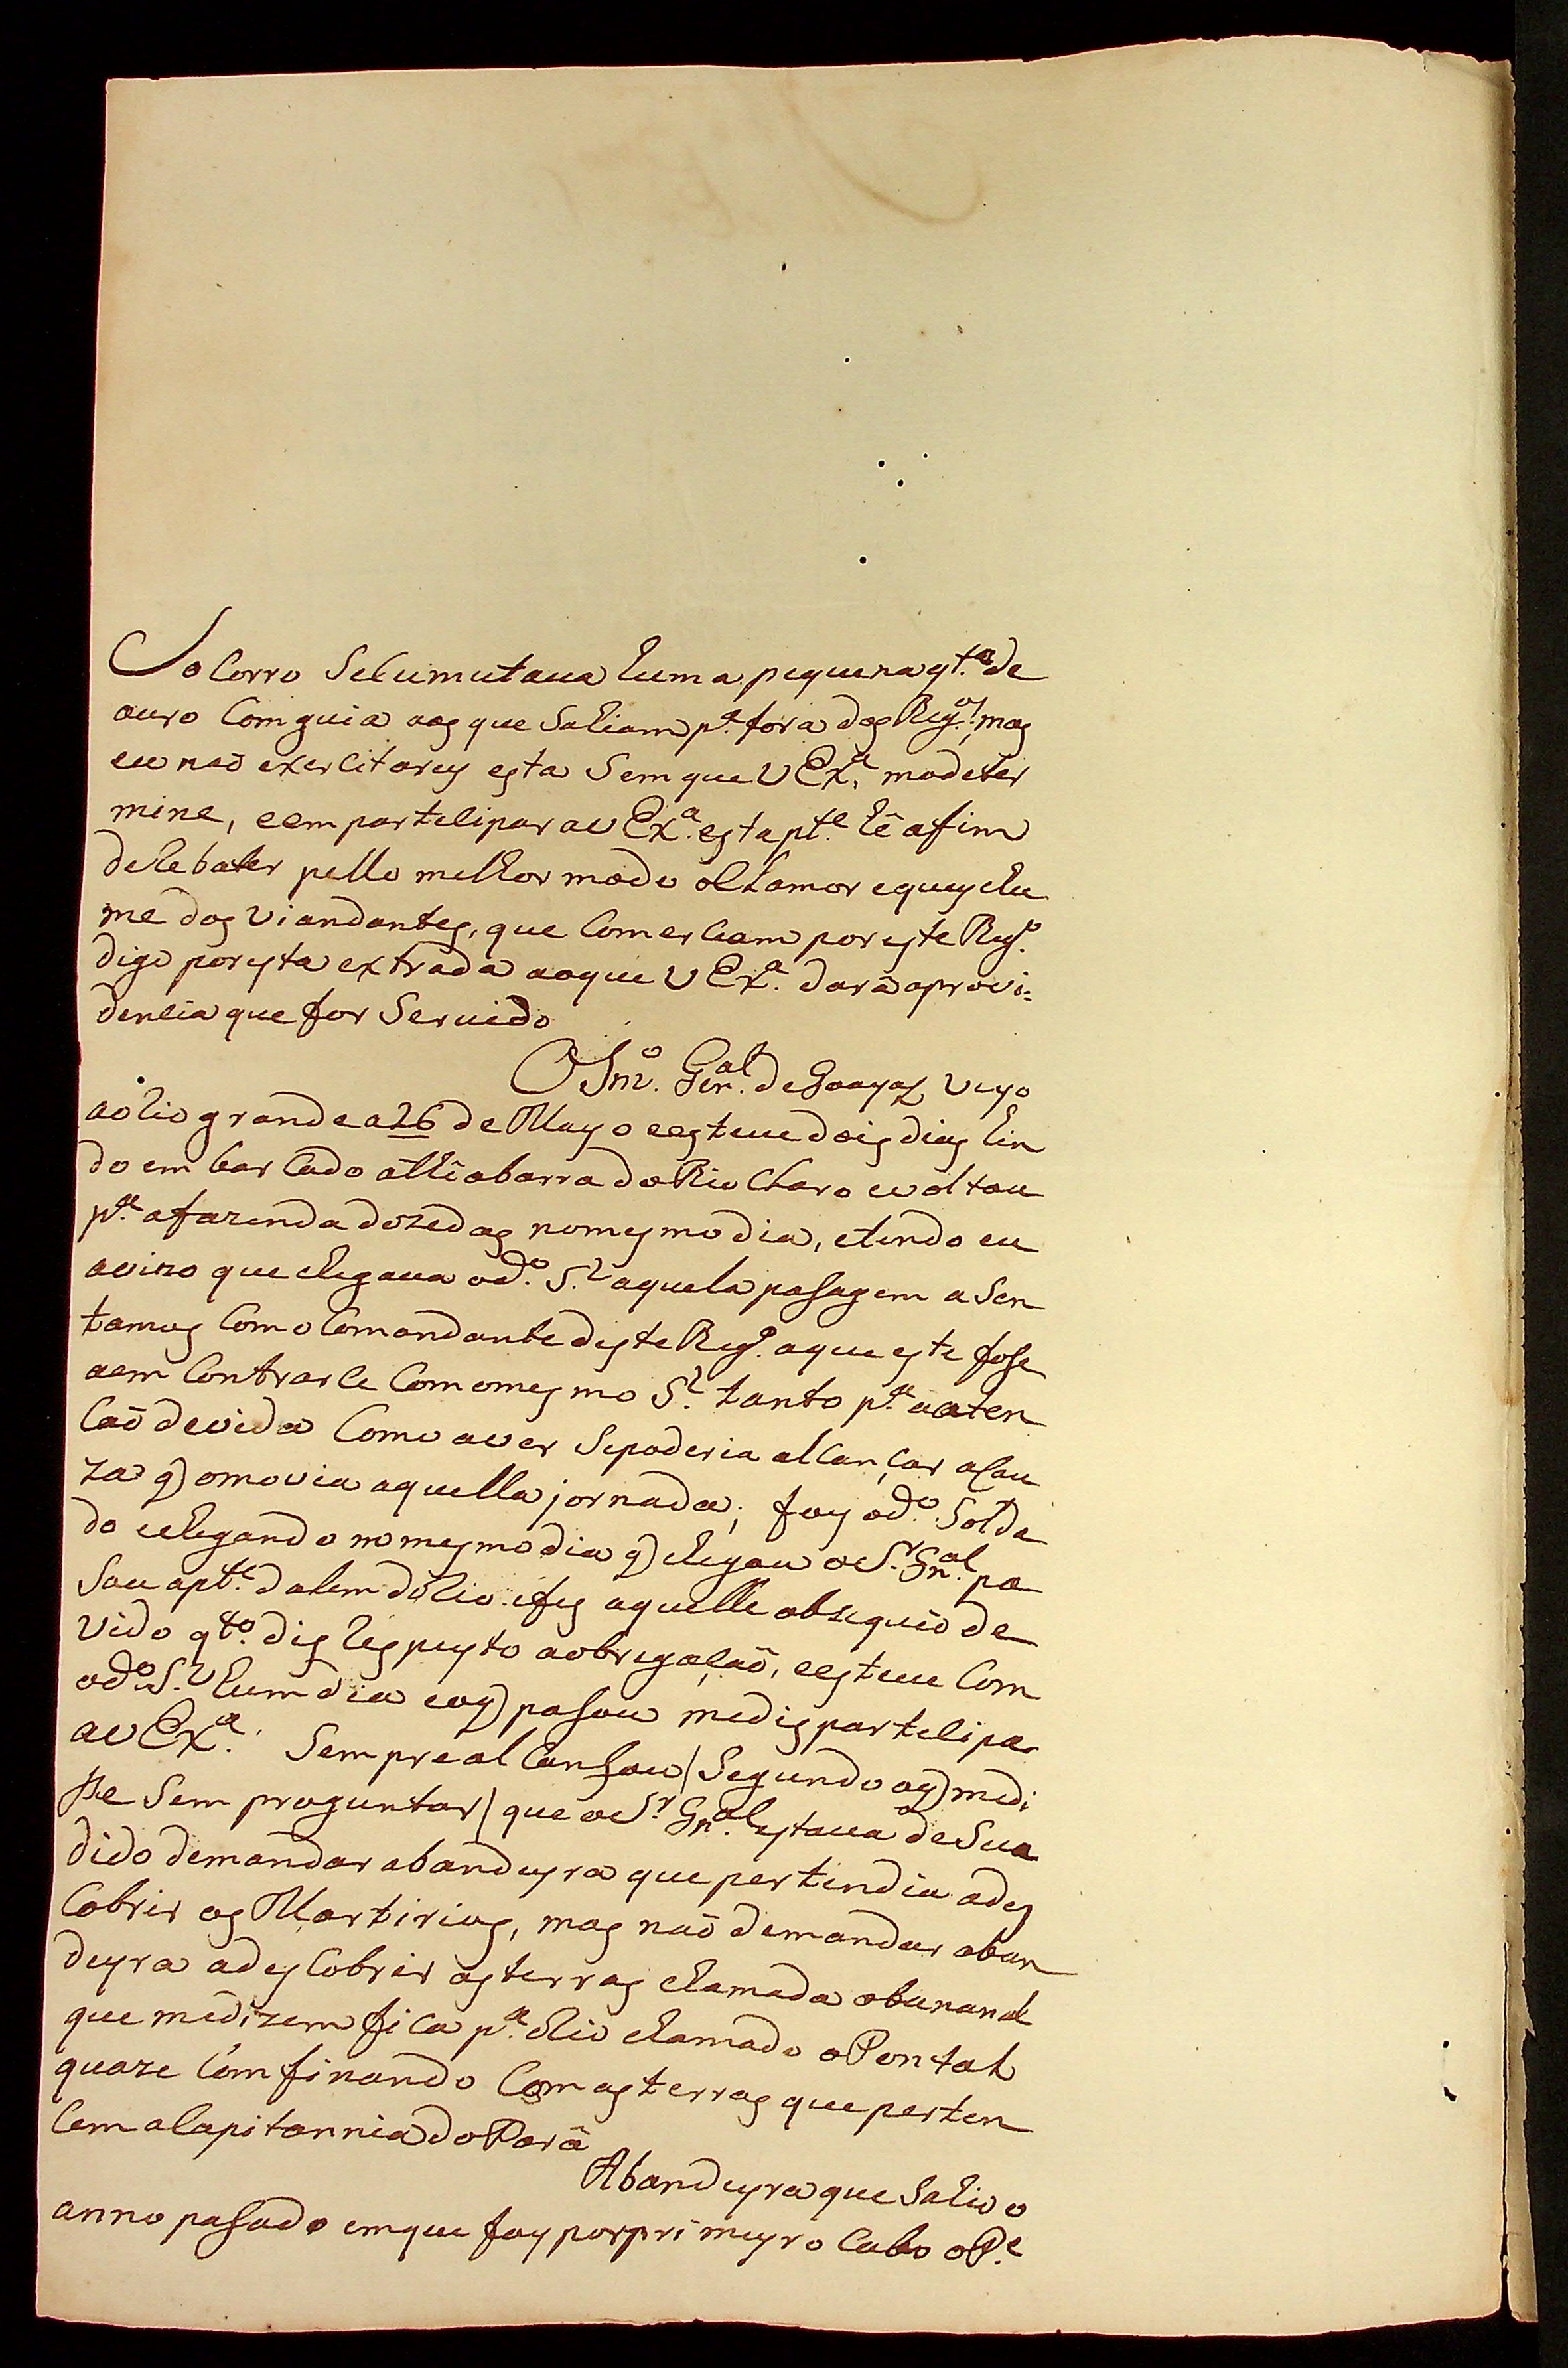 Socorro Secumutaua huma pequena qt.ª de
ouro Com guia aos que Sahiam p.ª fora dos Reg.os, mas
eu naõ exercitarey esta Sem que V Ex.ª mo deter
mine, e em partecipar a V Ex.ª esta pt.e hê afim
de rebater pello melhor modo o Clamor e queychu
me dos Viandantes, que Comerceam por este Reg.º
digo por esta extrada ao que V Ex.ª darâ a provi=
dencia que for Seruido
O Snr.º Gen.al de Goayaz veyo
ao rio grande a 26 de Mayo e esteue dois dias hin
do embarcado athe a barra do Rio Claro e voltou
p.ª a fazenda dozedas no mesmo dia, e tendo eu
avizo que chegaua o d.º S.r aquela pasagem a Sen
tamos Com o Comandante deste Reg.º a que este fose
a em Contrarce Com o mesmo S.r tanto p.ª a aten
Caõ devida Como a ver Se poderia alcançar a Cau
za q o movia aquella jornada; foy o d.º Solda
do e chegando no mesmo dia q chegou o S.r Gn.al pa
Sou a pt.e dalem do rio e fes aquelle obsequio de
vido q.to dis respeyto a obrigaçaõ, e esteue Com
o d.º S.r hum dia e o q pasou me dis partecipa
a V Ex.ª. Sempre alcansou | Segundo o q me di
sse Sem proguntar | que o S.r Gn.al estaua deSua
dido de mandar a bandeyra que pertendia a des
Cobrir os Martirios, mas naõ de mandar a ban
deyra a des Cobrir as terras chamada o bananal
que me dizem fica p.ª o Rio chamado o Pontal
quaze Comfinando Com as terras que perten
Cem a Capitannia do Parâ
A bandeyra que Sahio o
anno pasado em que foy por primeyro Cabo o P.e